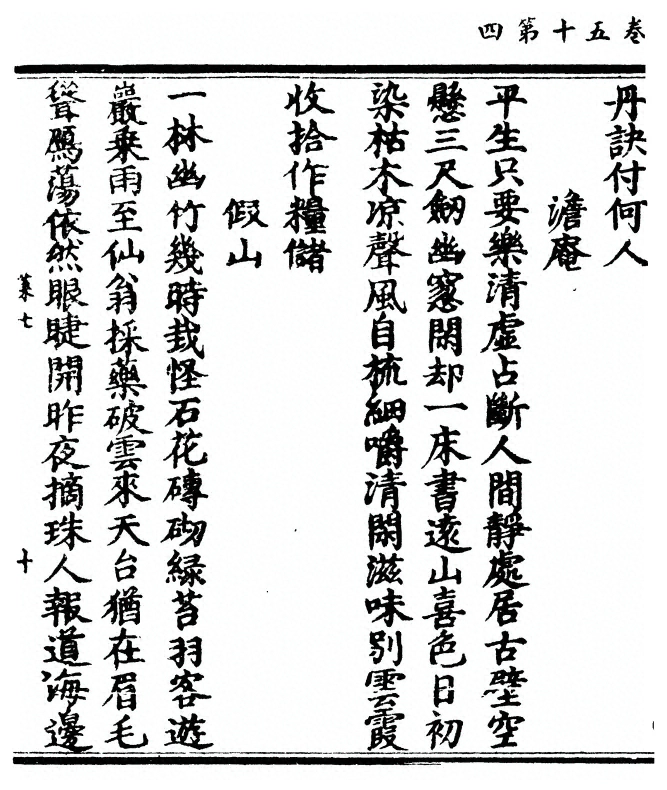 卷五十第四
丹訣付何人
澹庵
平生只要樂清虛占斷人間靜處居古壁空
懸三尺劒幽窓閑却一床書遠山喜色日初
染枯木凉聲風自梳細嚼清閑滋味别雲霞
收拾作糧儲
假山
一林幽竹幾時栽怪石花磚砌綠苔羽客遊
巖乗雨至仙翁採藥破雲來天台猶在眉毛
聳鴈蕩依然眼睫開昨夜摘珠人報道海邊
菓七
十